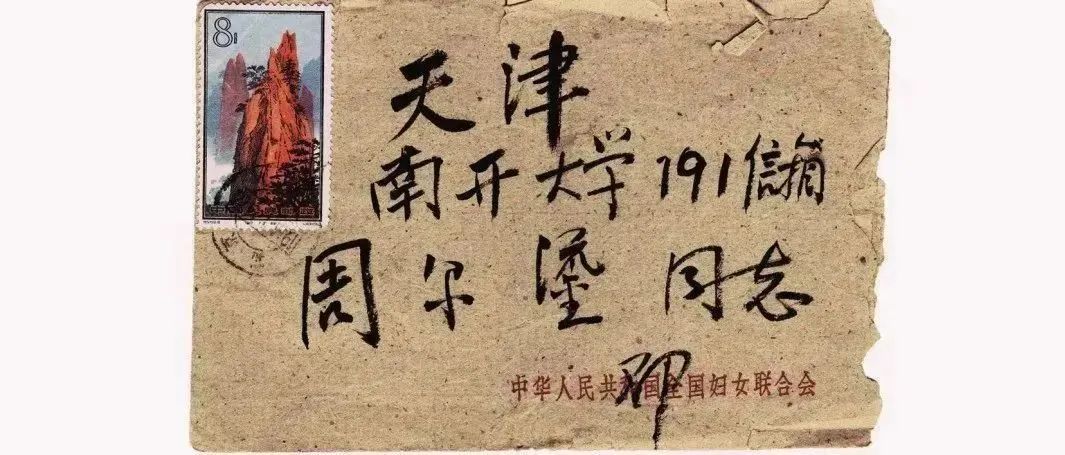 8
天津
南开大学191信箱
周尔鎏同志
中华人民共和国全国妇女联合会
邓